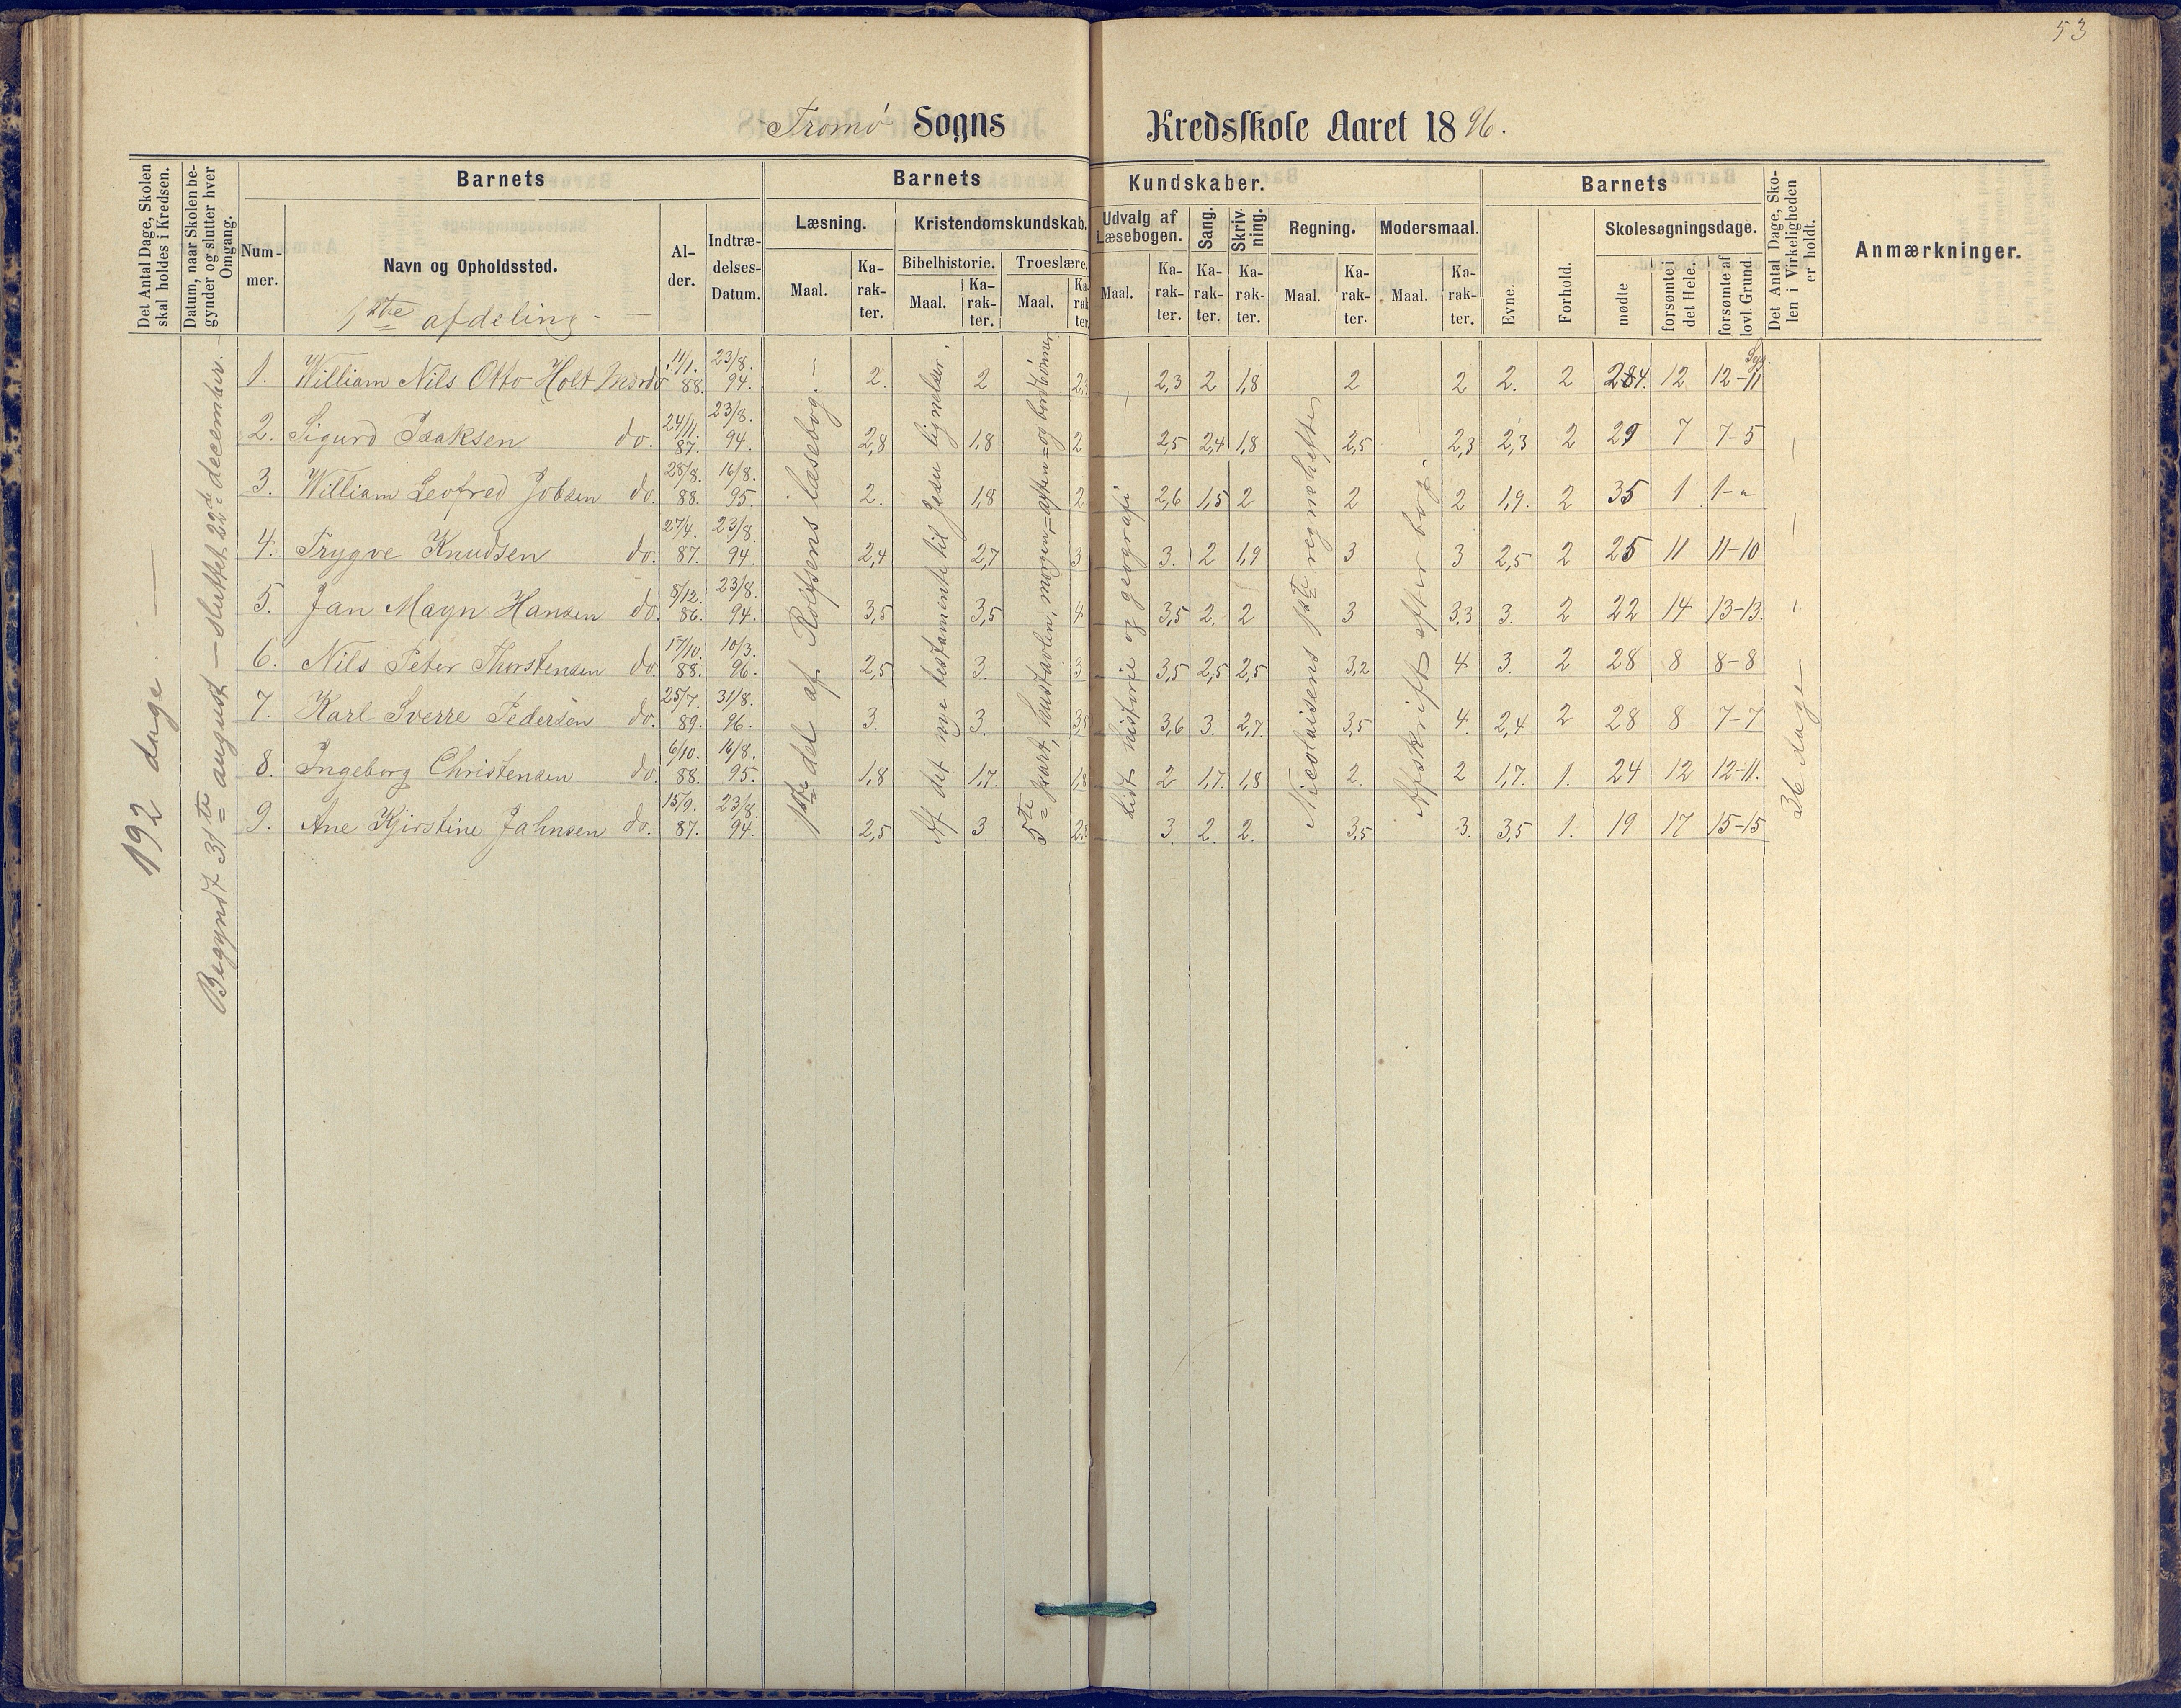 53
Tromø Sogns Kredsskole Aaret 1896.
Det Antal Dage, Skolen skal holdes i Kredsen.
Datum, naar Skolen begynder og slutter hver Omgang.
Barnets
Nummer.
Navn og Opholdssted.
Alder.
Indtrædelses-Datum.
Barnets Kundskaber.
Læsning.
Maal.
Karakter.
Kristendomskundskab.
Bibelhistorie.
Maal.
Karakter.
Troeslære.
Maal.
Karakter.
Udvalg af Læsebogen.
Maal.
Karakter.
Sang.
Karakter.
Skrivning.
Karakter.
Regning.
Maal.
Karakter.
Modersmaal.
Maal.
Karakter.
Barnets
Evne.
Forhold.
Skolesøgningsdage.
mødte
forsømte i det Hele.
forsømte af lovl. Grund.
Det Antal Dage, Skolen i Virkeligheden er holdt.
Anmærkninger.
1ste afdeling.
192 dage.
Begyndt 31te august — sluttet 22de december.
1ste del af Rolfsens læsebog.
Af det nye testamente til Jesu lignelser.
5te part, hustavlen, morgen= aften= og bordbønner
Lidt historie og geografi
Nicolaisens 1ste regnehefte
Afskrift efter bog.
36 dage
1. William Nils Otto Holt Mærdø 11/1. 88. 23/8. 94. 2. 2 2,3 2,3 2 1,8 2 2 2. 2 24. 12 12-11 Syg.
2. Sigurd Isaksen do. 24/11. 87. 23/8. 94. 2,8 1,8 2 2,5 2,4 1,8 2,5 2,3 2,3 2 29 7 7-5
3. William Leofred Jobsen do. 28/8. 88. 16/8. 95. 2. 1,8 2 2,6 1,5 2 2 2 1,9. 2 35 1 1-"
4. Trygve Knudsen do. 27/4. 87. 23/8. 94. 2,4 2,7 3 3. 2 1,9 3 3 2,5 2 25 11 11-10
5. Jan Magn Hansen do. 8/12. 86. 23/8. 94. 3,5 3,5 4 3,5 2. 2 3 3,3 3. 2 22 14 13-13.
6. Nils Peter Thorstensen do. 17/10. 88. 10/3. 96. 2,5 3. 3 3,5 2,5 2,5 3,2 4 3. 2 28 8 8-8
7. Karl Sverre Pedersen do. 25/7. 89. 31/8. 96. 3. 3. 3,5 3,6 3. 2,7. 3,5 4. 2,4 2 28 8 7-7
8. Ingeborg Christensen do. 6/10. 88. 16/8. 95. 1,8 1,7. 1,8 2 1,7. 1,8 2. 2 1,7. 1. 24 12 12-11.
9. Ane Kjirstine Jahnsen do. 15/9. 87. 23/8. 94. 2,5 3. 2,8 3. 2. 2. 3,5 3. 3,5 1. 19 17 15-15